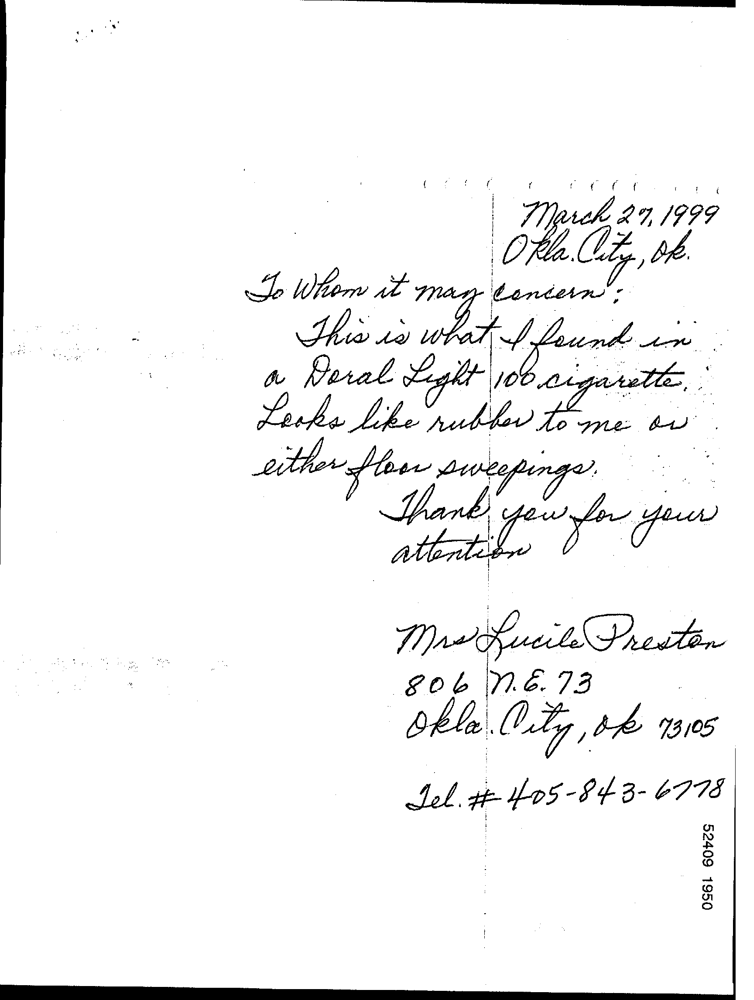 March 27, 1999
Okla. City, Ok.
To Whom it may concern:
This is what I found in
a Doral Light 100 cigarette.
Looks like rubber to me or
either floor sweepings.
Thank you for your
attention
Mrs Lucile Preston
806 N.E. 73
Okla. City, Ok 73105
Tel. # 405-843-6778
52409 1950